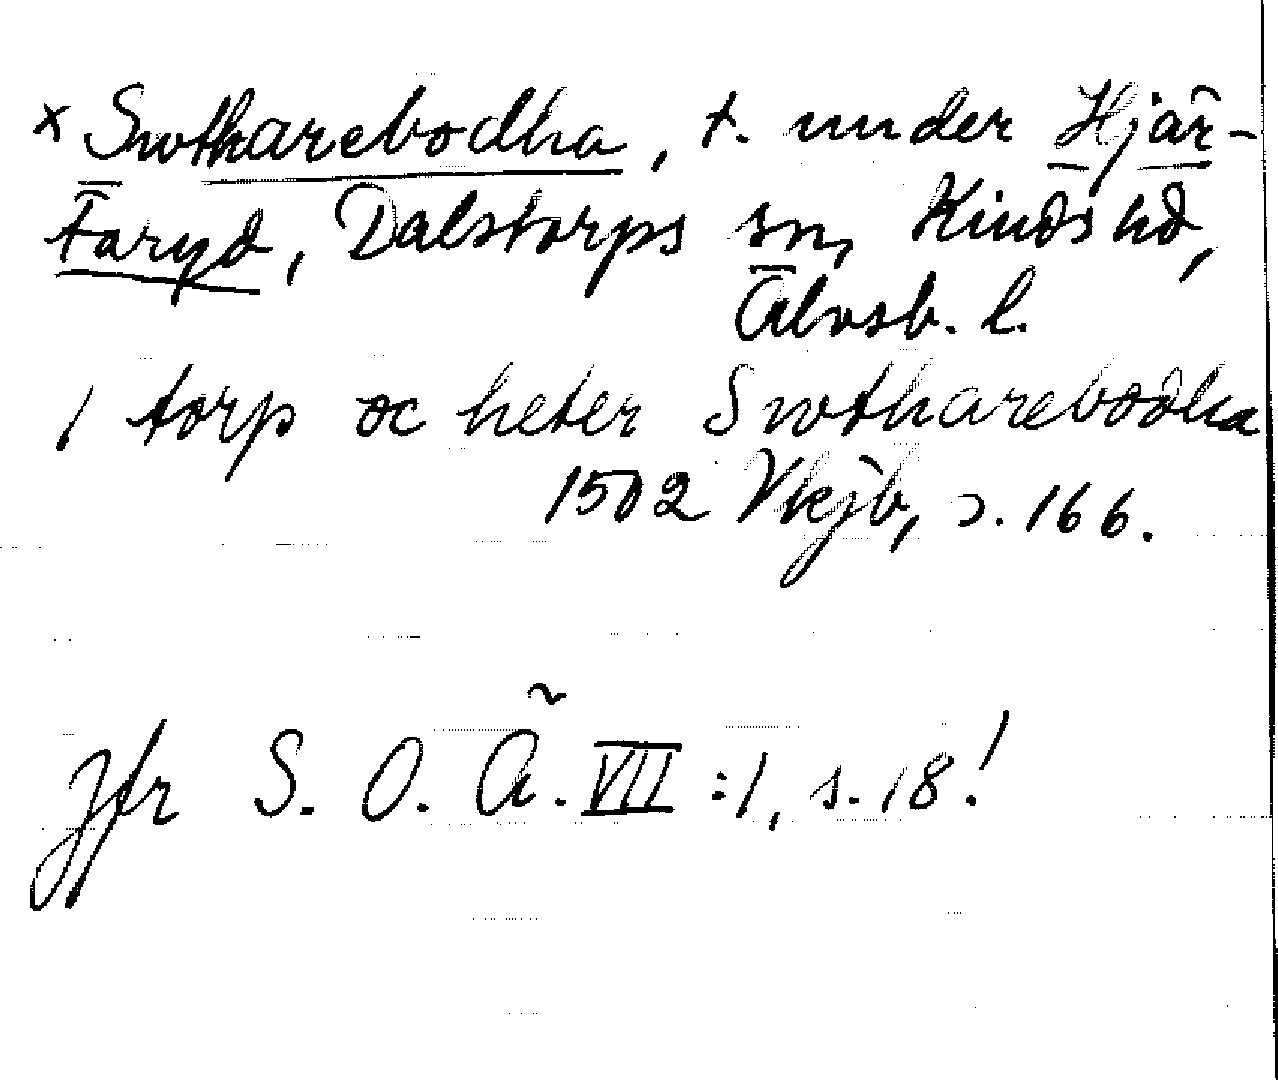 × Swtharebodha, t. under Hjär-
taryd, Dalstorps sn, Kinds hd,
Älvsb. l.
1 torp oc heter Swtharebodha
1502 Vkjb, s. 166.
Jfr S. O. Ä. VII:1, s. 18!